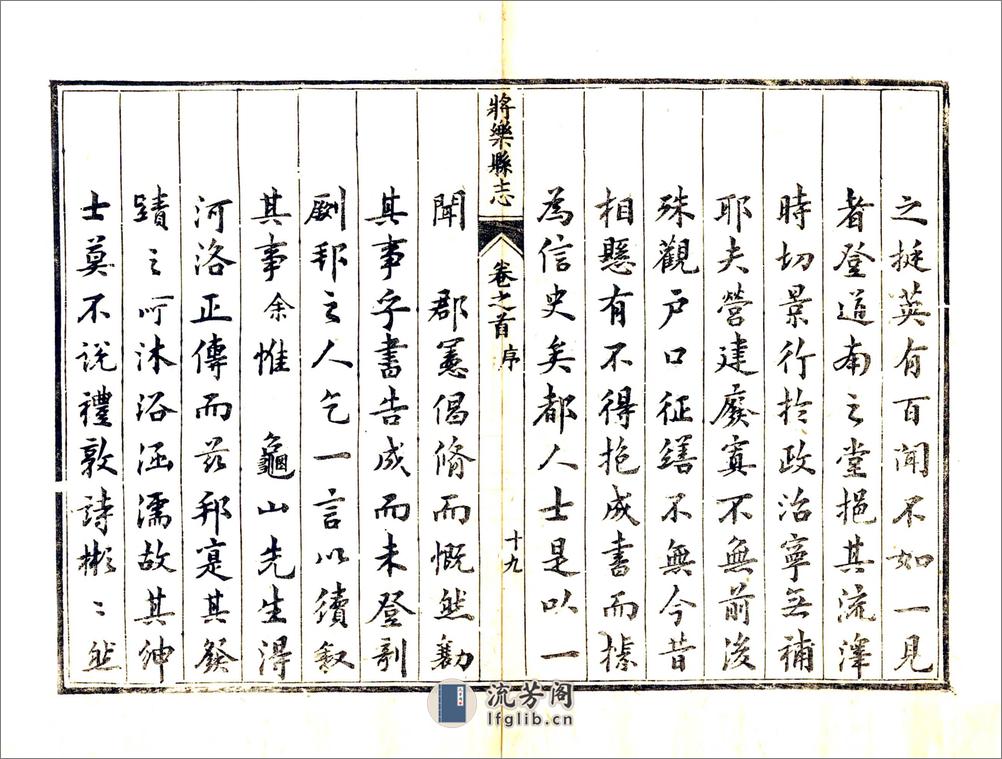 之挺英有百聞不如一見
者登道南之堂挹其流澤
時切景行扵政治寧無補
耶夫營建廢寘不無前後
殊觀户口征繕不無今昔
相懸有不得抱成書而據
為信史矣都人士是以一
將樂縣志
卷之首
序
十九
聞 郡憲倡脩而慨然勷
其事乎書告成而未登剞
劂邦之人乞一言以續叙
其事余惟 龜山先生得
河洛正傳而兹邦寔其發
蹟之所沐浴涵濡故其紳
士莫不説禮敦詩彬〻然
流芳阁
lfglib.cn